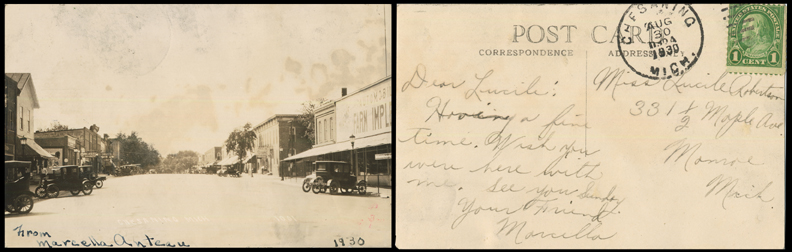 FARM IMPL
From
Marcella Anteau
1930
POST CARD
CORRESPONDENCE
ADDRESS ONLY
CHESANING
AUG
30
1930
MICH.
UNITED STATES POSTAGE
1 CENT 1
Dear Lucile:
Having a fine
time. Wish you
were here with
me. See you Sunday
Your friend
Marcella
Miss Lucile Robertson
331 1/2 Maple Ave.
Monroe
Mich.